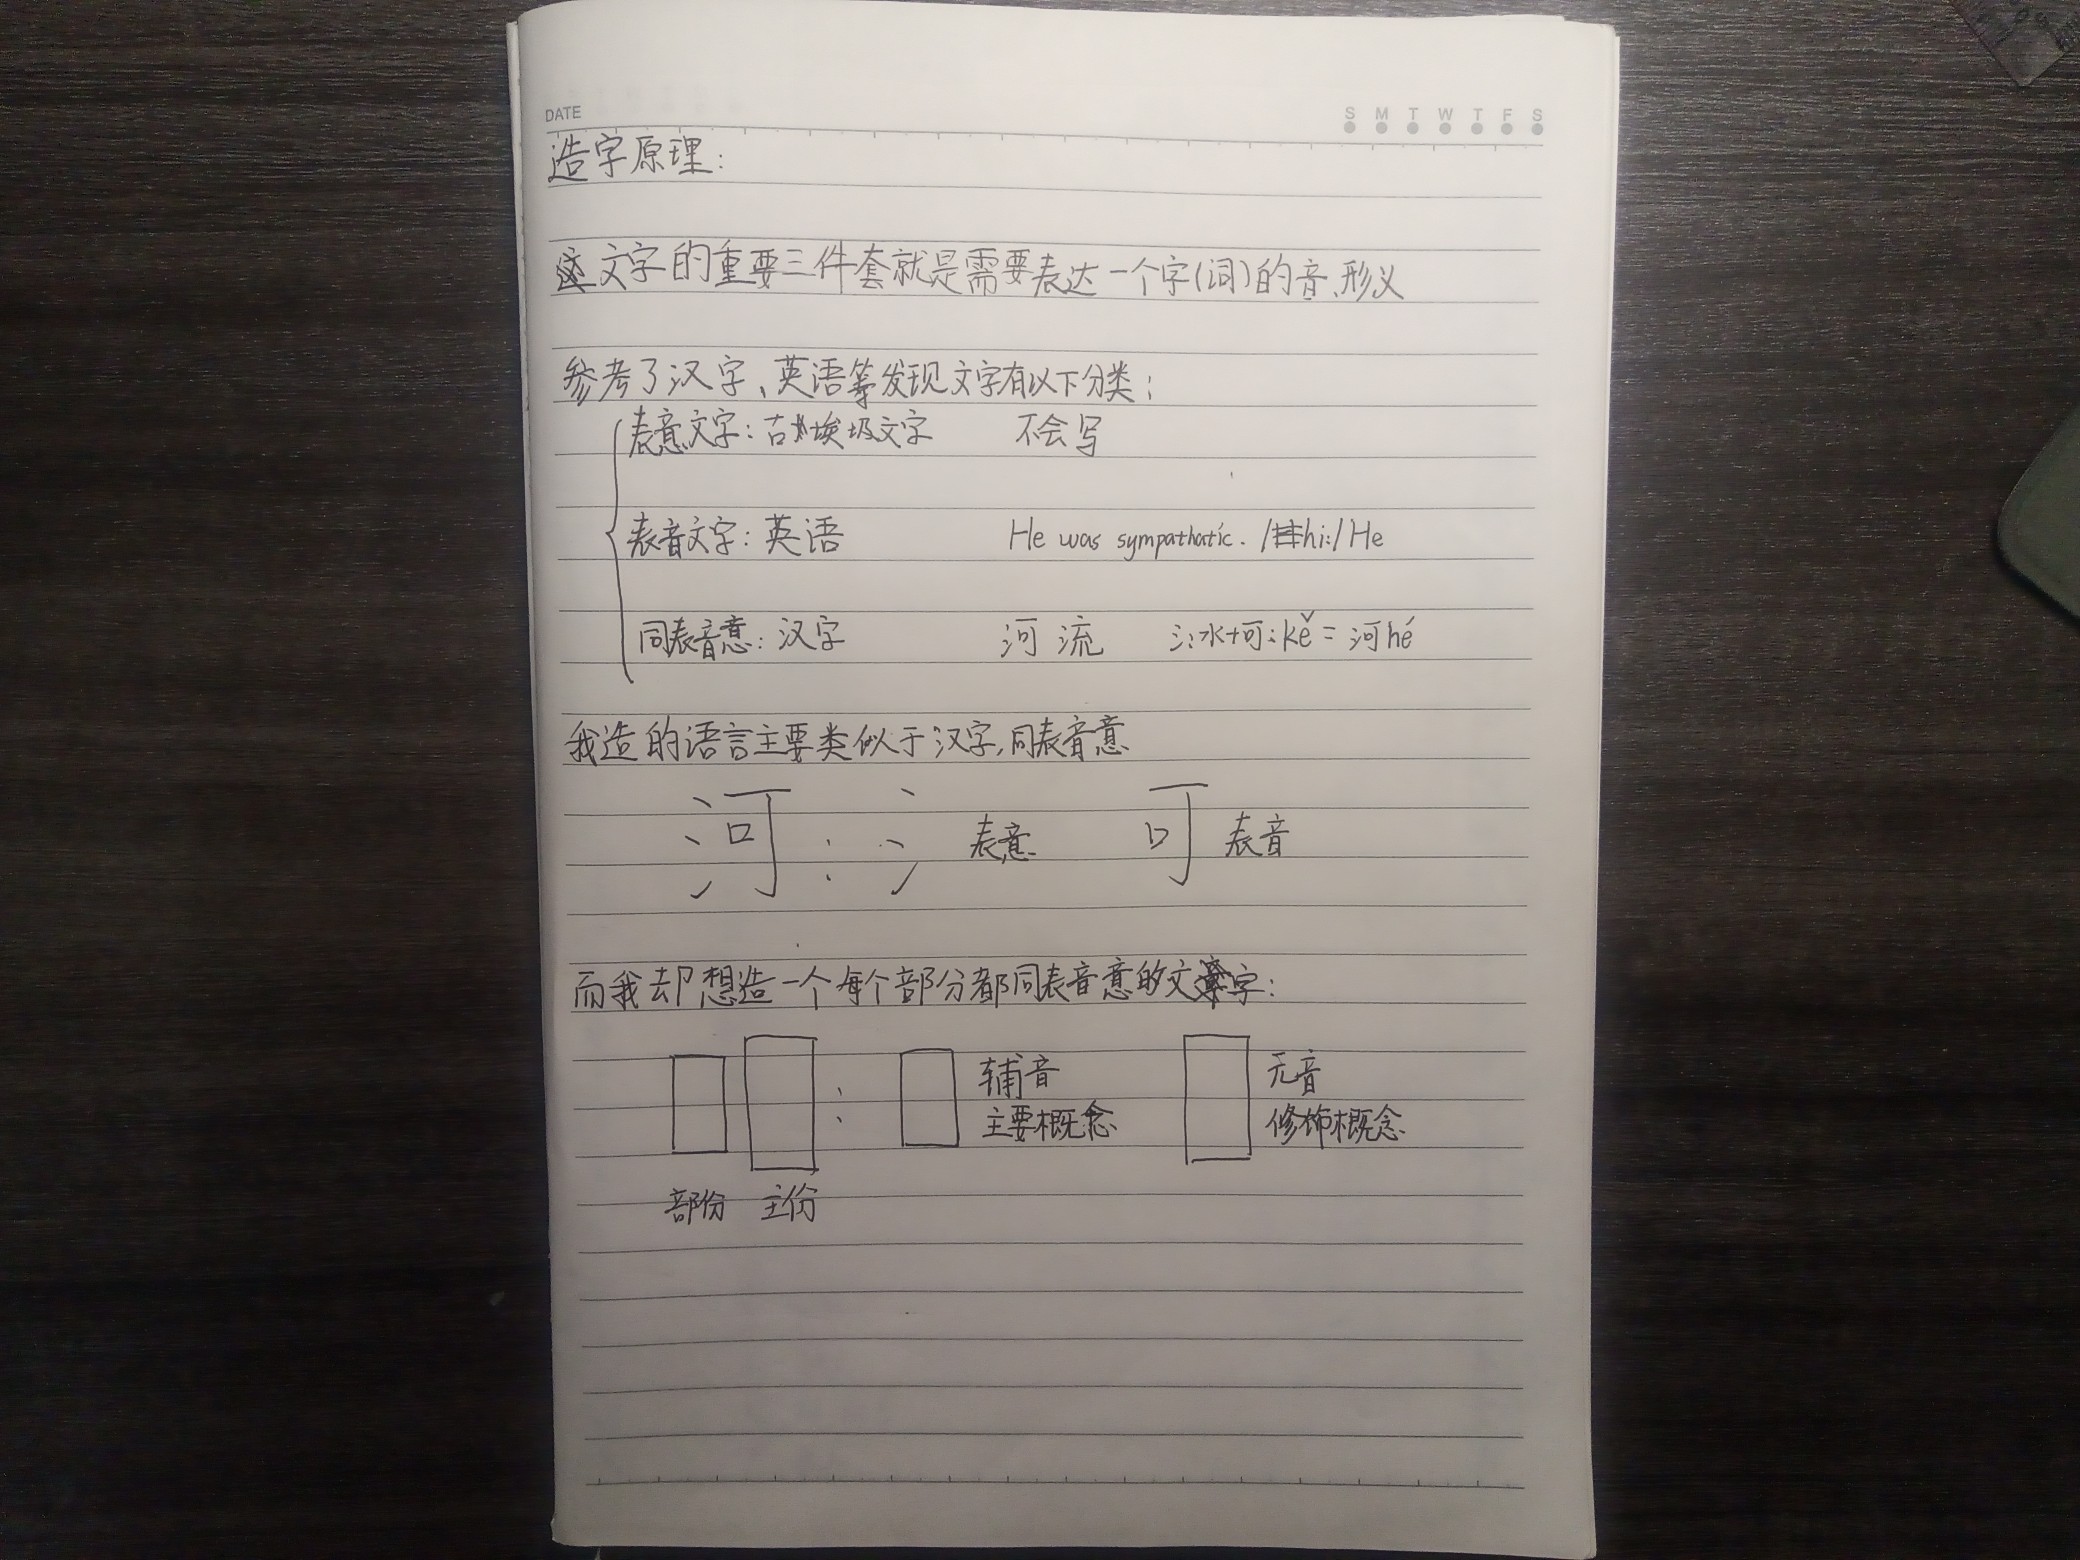 DATE
S M T W T F S
造字原理:
文字的重要三件套就是需要表达一个字(词)的音、形义
参考了汉字、英语等发现文字有以下分类:
表意文字:古埃及文字 不会写
表音文字:英语 He was sympathatic. /hi:/ He
同表音意:汉字 河流 氵:水+可:kě = 河 hé
我造的语言主要类似于汉字,同表音意
河: 氵 表意 可 表音
而我却想造一个每个部分都同表音意的文字:
: 辅音 元音
主要概念 修饰概念
部份 主份